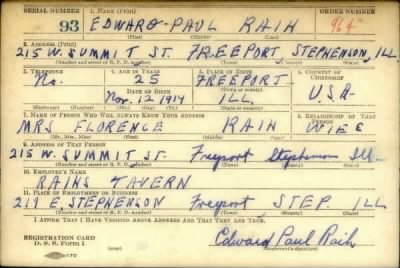 SERIAL NUMBER 1. NAME (Print) ORDER NUMBER
93 EDWARD PAUL RAIH 964
(First) (Middle) (Last)
2. ADDRESS (Print)
215 W. SUMMIT ST. FREEPORT, STEPHENSON, ILL.
(Number and street or R. F. D. number) (Town) (County) (State)
3. TELEPHONE 4. AGE IN YEARS 5. PLACE OF BIRTH 6. COUNTRY OF CITIZENSHIP
No. 25 FREEPORT
DATE OF BIRTH (Town or county)
Nov. 12 1914 ILL. U.S.A.
(Mo.) (Day) (Yr.) (State or country)
7. NAME OF PERSON WHO WILL ALWAYS KNOW YOUR ADDRESS 8. RELATIONSHIP OF THAT PERSON
MRS. FLORENCE RAIH WIFE
(Mr., Mrs., Miss) (First) (Middle) (Last)
9. ADDRESS OF THAT PERSON
215 W. SUMMIT ST. Freeport Stephenson Ill.
(Number and street or R. F. D. number) (Town) (County) (State)
10. EMPLOYER'S NAME
RAIHS TAVERN
11. PLACE OF EMPLOYMENT OR BUSINESS
219 E. STEPHENSON Freeport STEP. ILL.
(Number and street or R. F. D. number) (Town) (County) (State)
I AFFIRM THAT I HAVE VERIFIED ABOVE ANSWERS AND THAT THEY ARE TRUE.
REGISTRATION CARD
D. S. S. Form 1 Edward Paul Raih
(Registrant's signature)